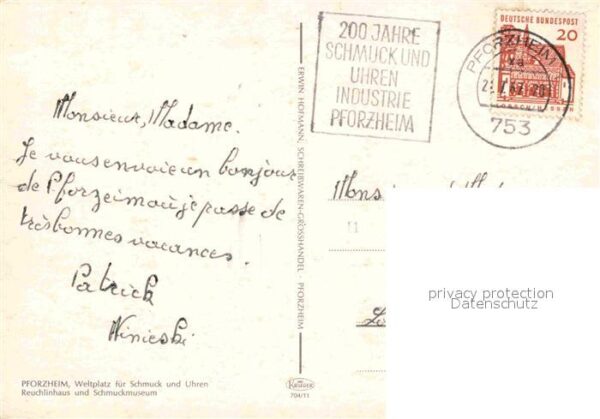 200 JAHRE
SCHMUCK UND
UHREN
INDUSTRIE
PFORZHEIM
DEUTSCHE BUNDESPOST
20
PFORZHEIM
753
Monsieur, Madame.
Je vous envoie un bonjour
de Pforzeim où je passe de
très bonnes vacances.
Patrick
ERWIN HOFMANN, SCHREIBWAREN-GROSSHANDEL · PFORZHEIM
privacy protection
Datenschutz
PFORZHEIM, Weltplatz für Schmuck und Uhren
Reuchlinhaus und Schmuckmuseum
Krüger
704/11